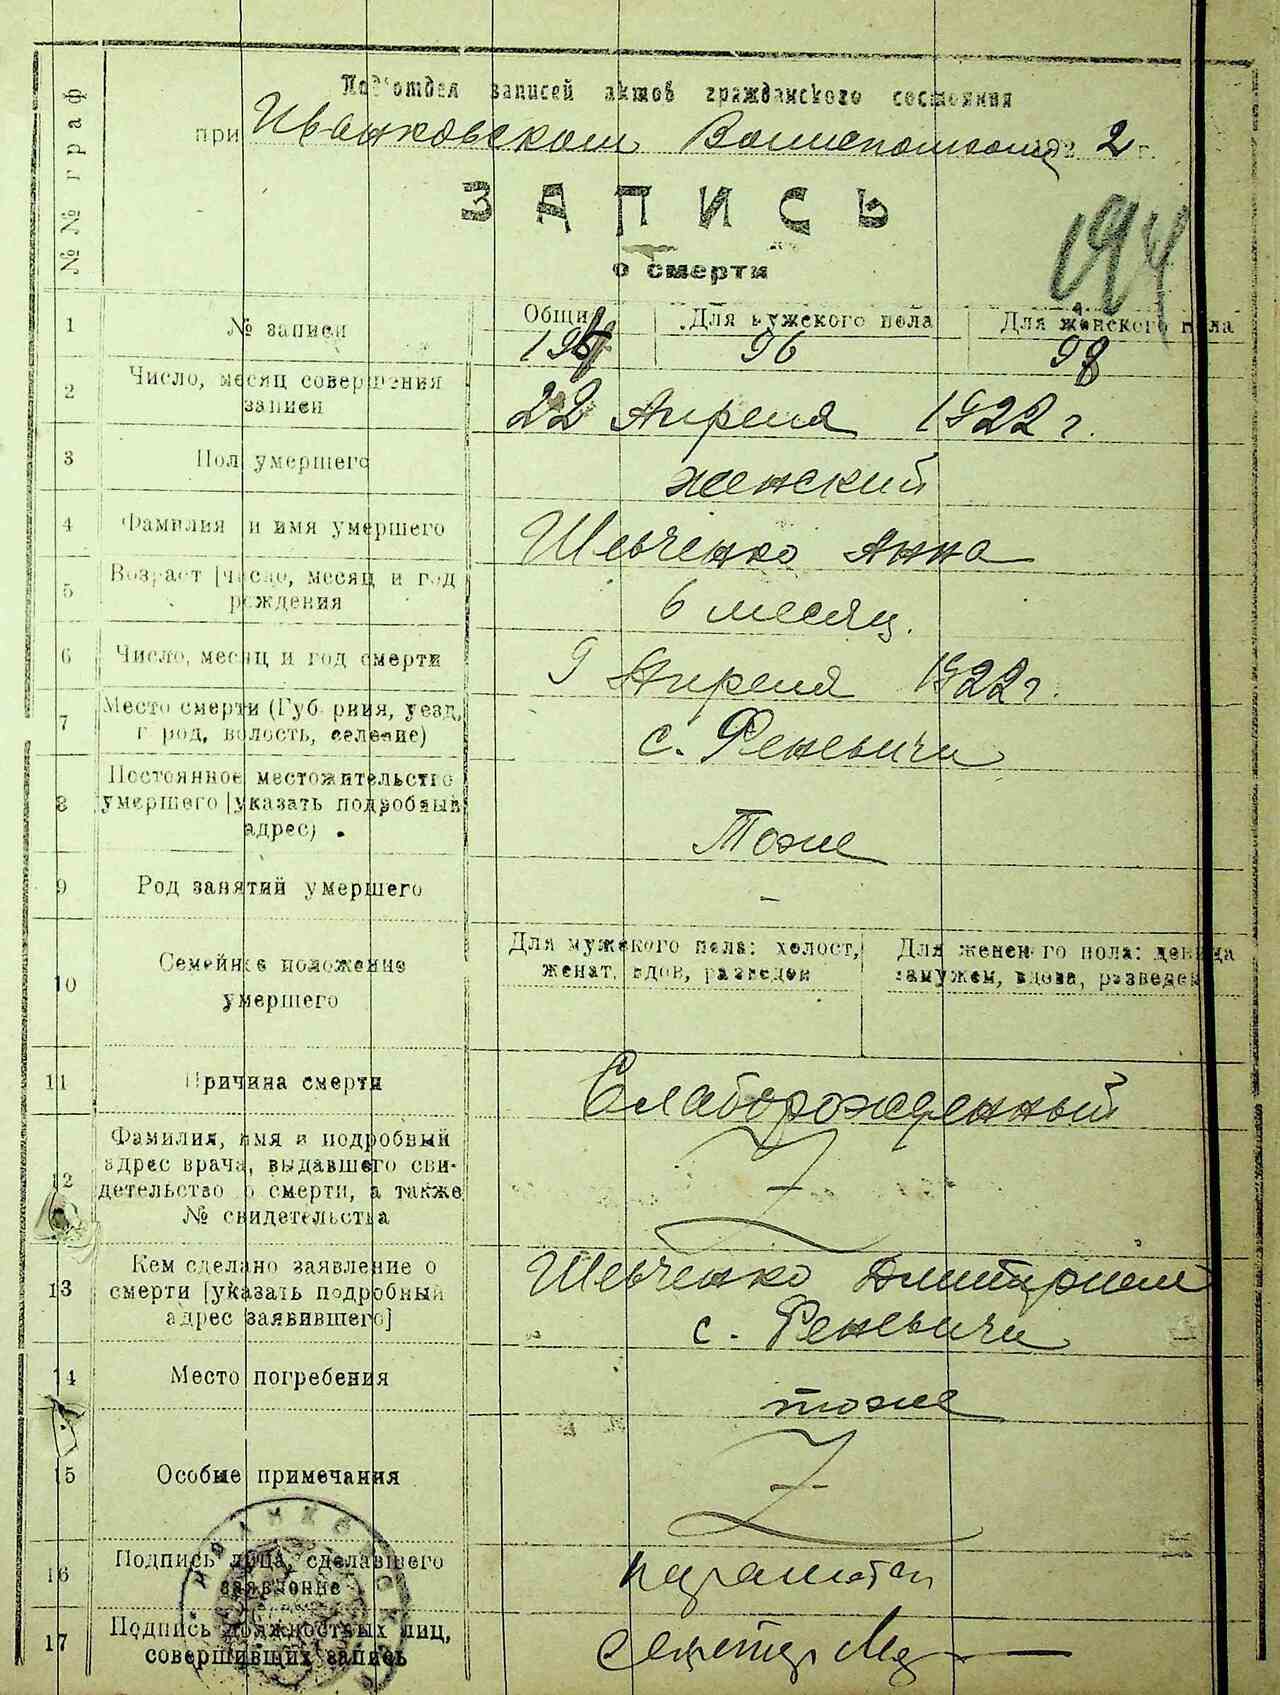 №№ граф
Подотдел записей актов гражданского состояния
при Иванковском Волисполкоме 1922 г.
ЗАПИСЬ
о смерти
194
1 № записи Общий Для мужского пола Для женского пола
194 96 98
2 Число, месяц совершения
записи
22 Апреля 1922 г.
3 Пол умершего женский
4 Фамилия и имя умершего Шевченко Анна
5 Возраст [число, месяц и год
рождения
6 месяц.
6 Число, месяц и год смерти 9 Апреля 1922 г.
7 Место смерти (Губерния, уезд,
город, волость, селение)
с. Феневичи
8 Постоянное местожительство
умершего [указать подробный
адрес)
Тоже
9 Род занятий умершего -
10 Семейное положение
умершего
Для мужского пола: холост,
женат, вдов, разведен
Для женского пола: девица
замужем, вдова, разведен
11 Причина смерти Слаборожденный
12 Фамилия, имя и подробный
адрес врача, выдавшего сви-
детельство о смерти, а также
№ свидетельства
13 Кем сделано заявление о
смерти [указать подробный
адрес заявившего]
Шевченко Дмитрием
с. Феневичи
14 Место погребения тоже
15 Особые примечания
16 Подпись лица, сделавшего
заявление
17 Подпись должностных лиц,
совершивших запись